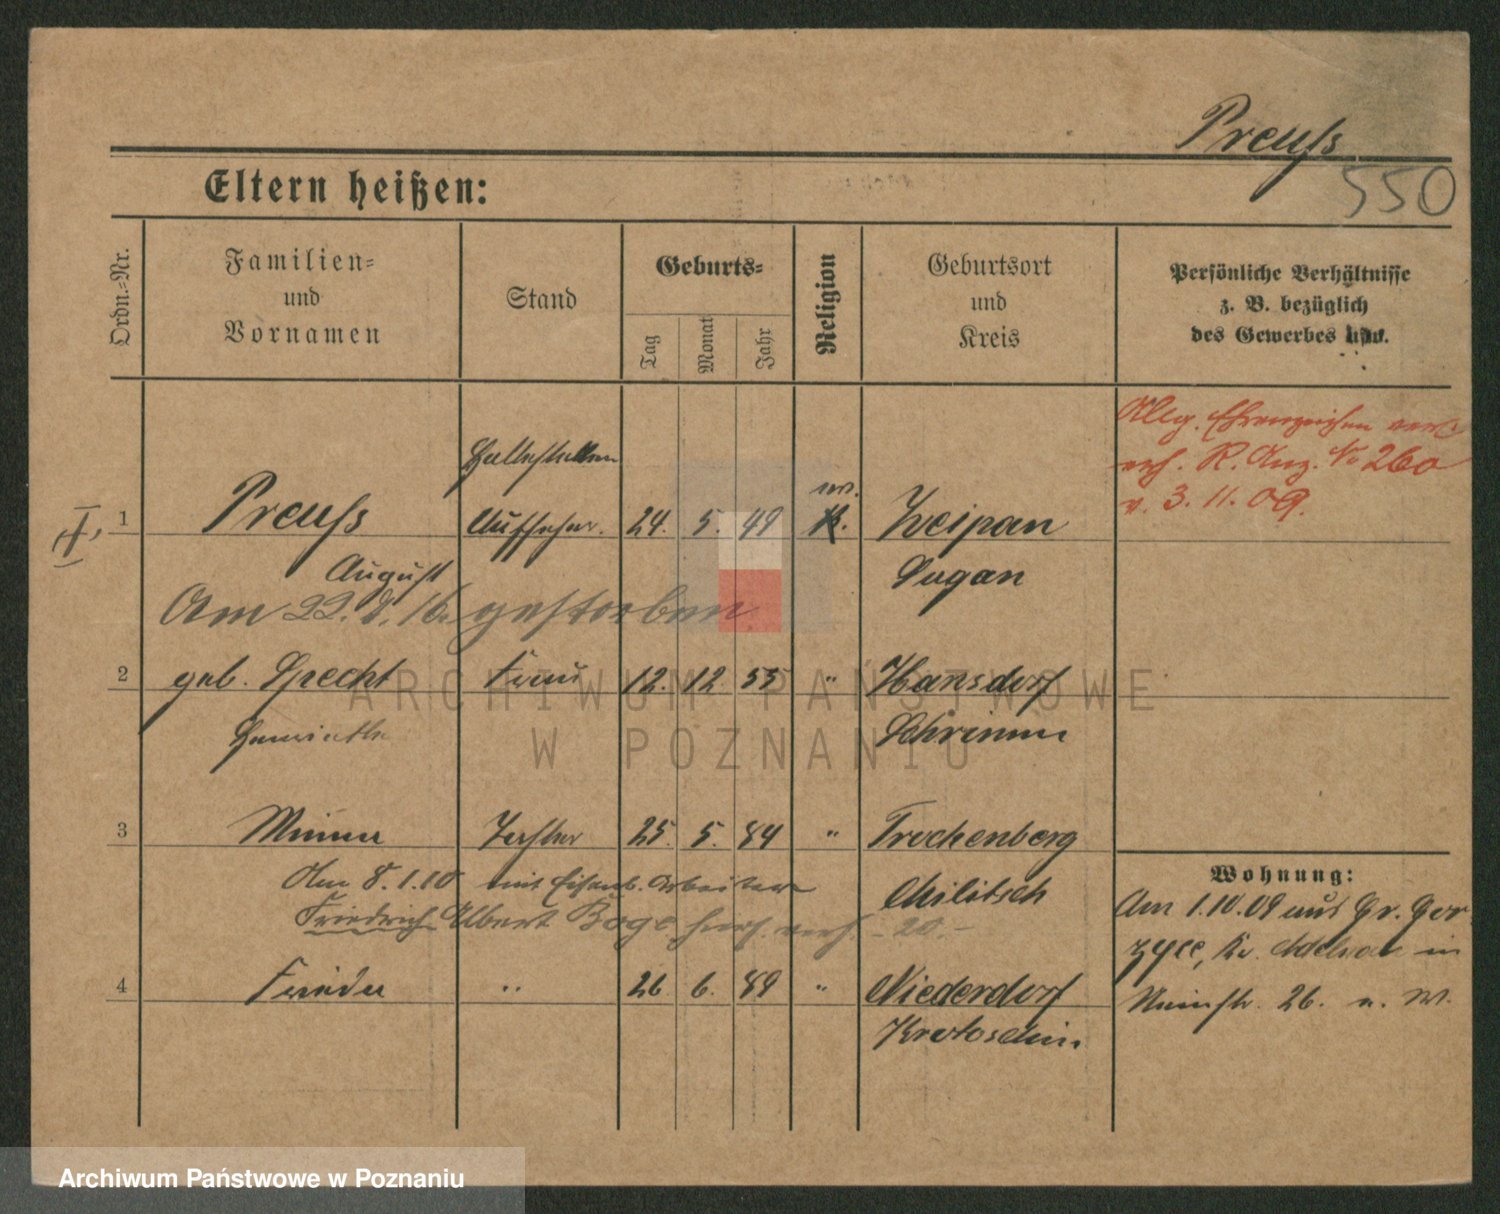 Preuß
550
Eltern heißen:
Ordn.-Nr.
Familien-
und
Vornamen
Stand
Geburts-
Tag
Monat
Jahr
Religion
Geburtsort
und
Kreis
Persönliche Verhältnisse
z. B. bezüglich
des Gewerbes usw.
Allg. Ehrenzeichen
R. Anz. No 260
v. 3. 11. 09.
I,
1
Preuß
August
Haltestellen
Aufseher.
24. 5. 49
Sagan
Am 22. 8. 16. gestorben
2
geb. Specht
Henriette
Frau
12. 12. 55
"
Hansdorf
Schrimm
3
Minna
Tochter
25. 5. 84
"
Trockenberg
Militsch
Am 8.1.10 mit Eisenb. Arbeiter
Friedrich Albert Boge hier verh. - 20. -
4
Frieda
"
26. 6. 89
"
Niederdorf
Krotoschin.
Wohnung:
Am 1.10.09 aus Gr. Gor
zyce, Kr. Adelnau in
26. n. W.
ARCHIWUM PAŃSTWOWE
W POZNANIU
Archiwum Państwowe w Poznaniu